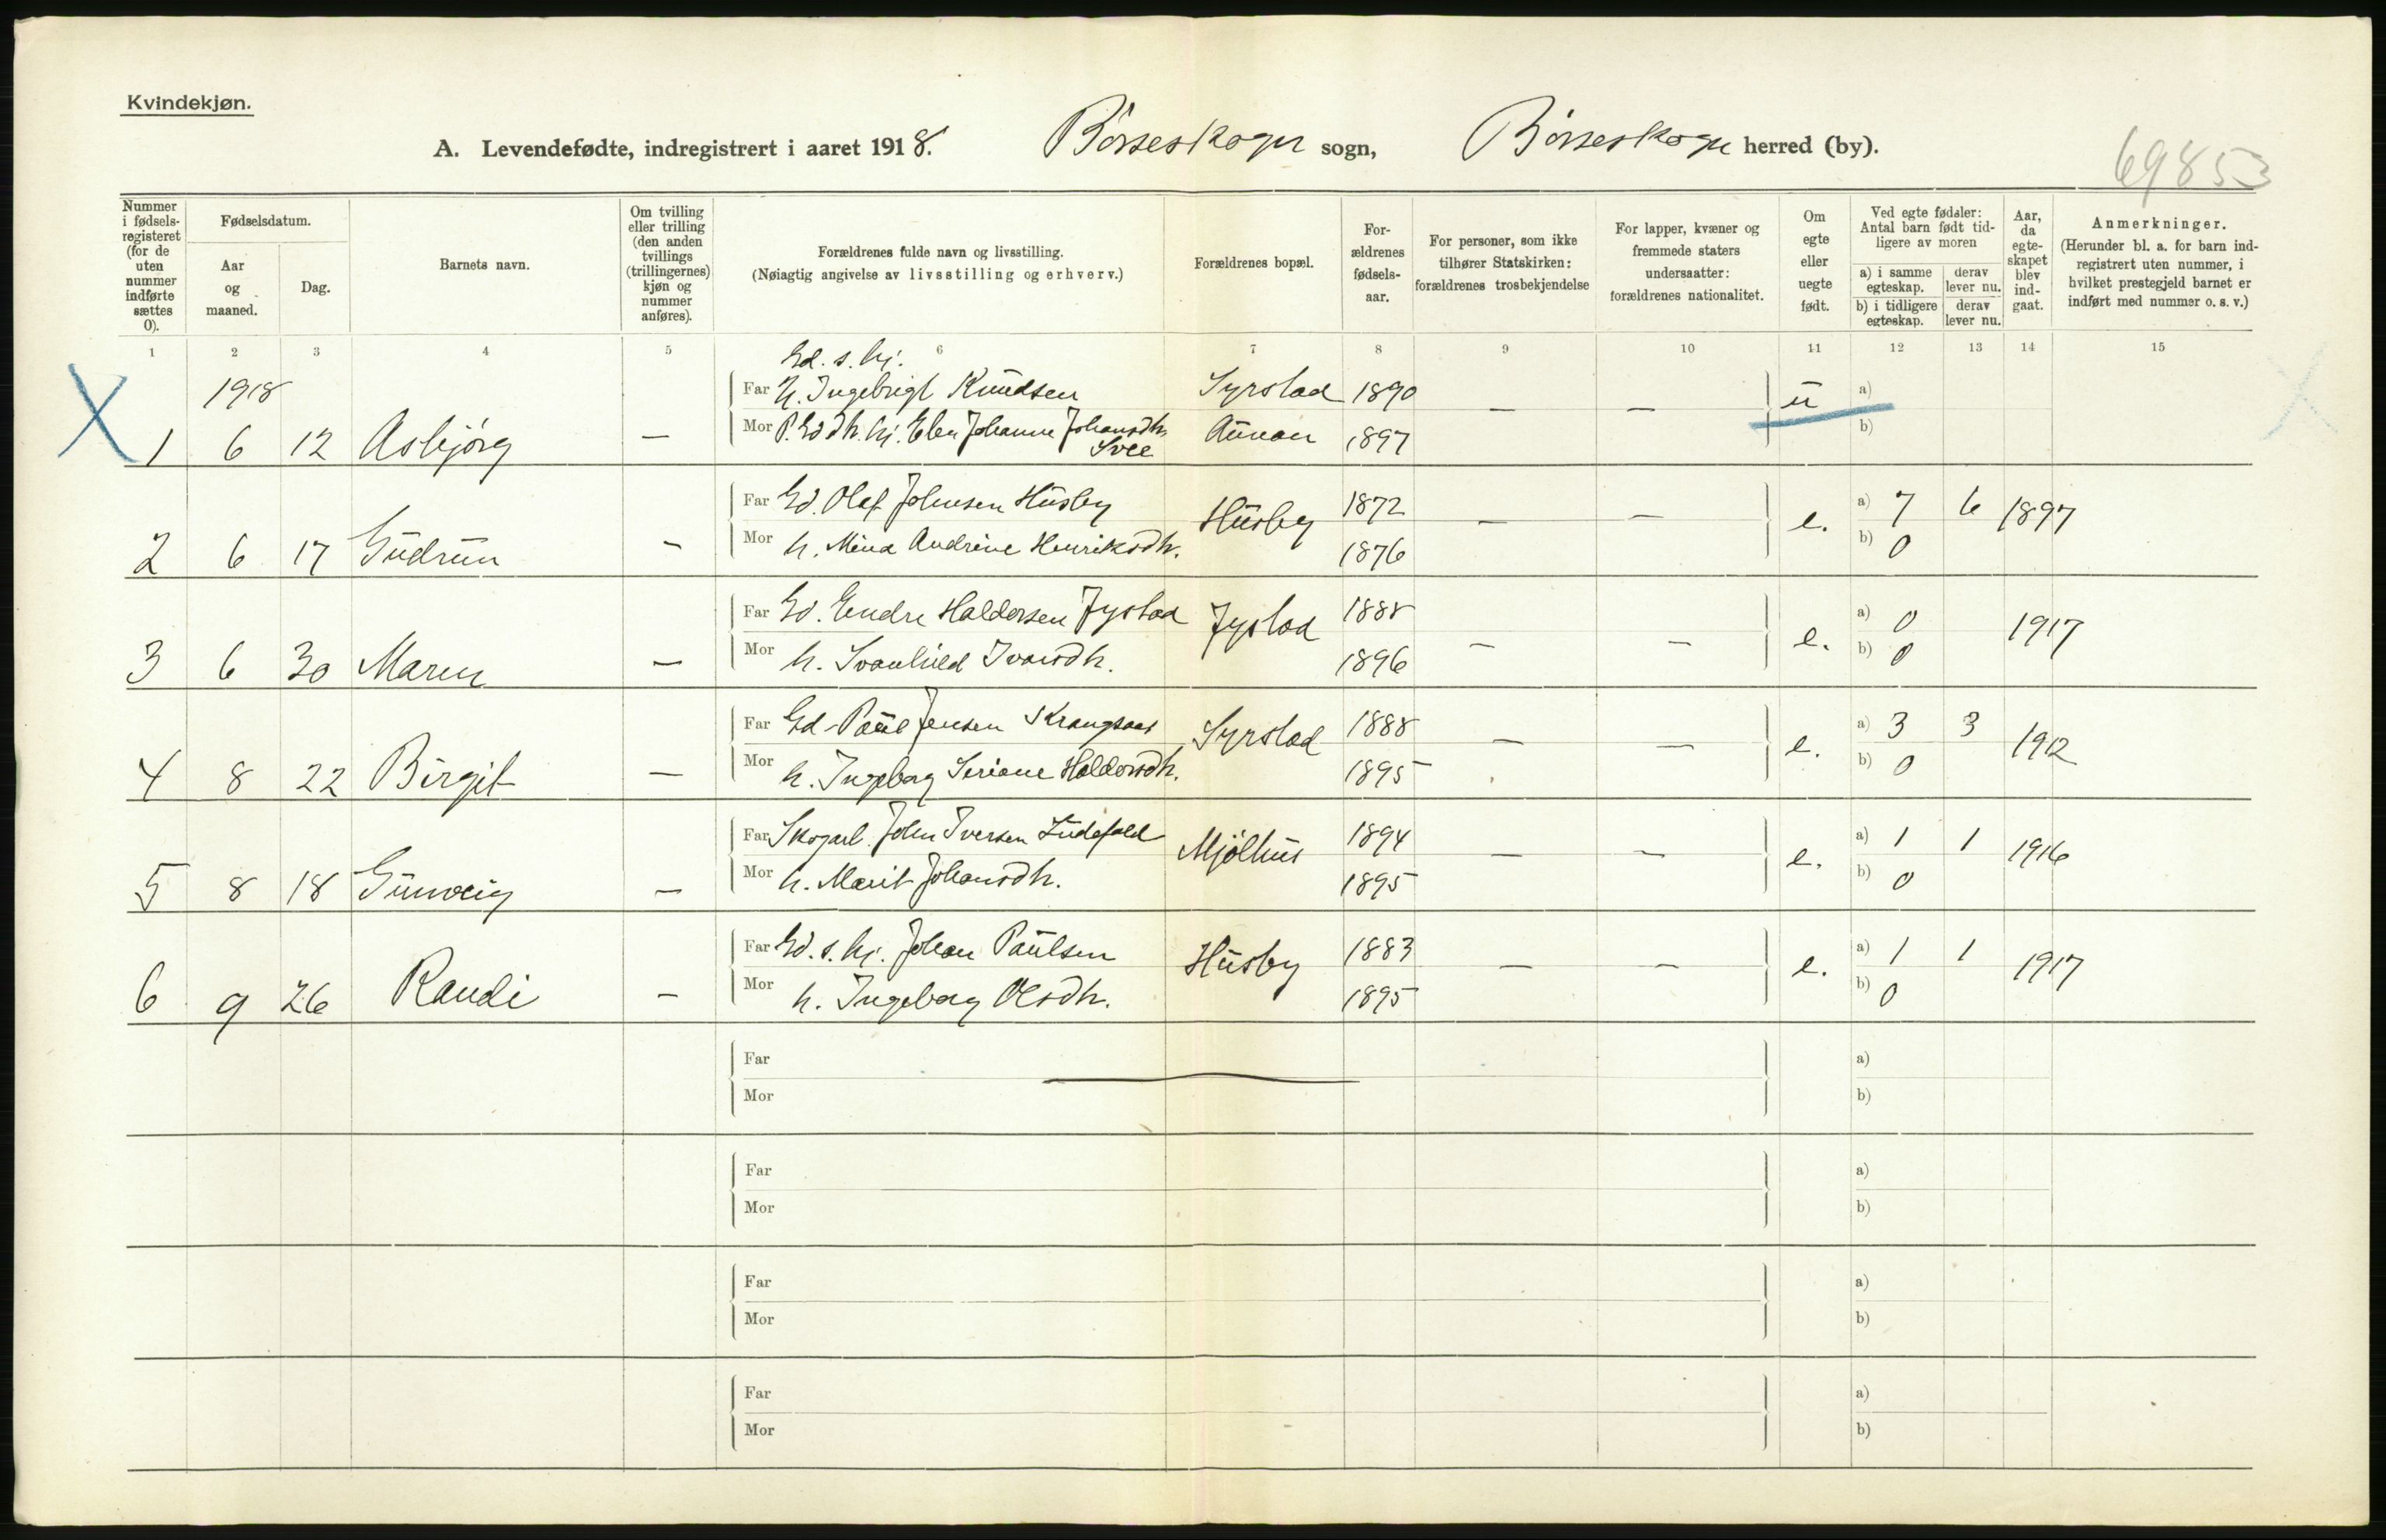 Kvindekjøn.
A. Levendefødte, indregistrert i aaret 1918. Børseskogn sogn, Børseskogn herred (by).
69853
Nummer i fødselsregisteret (for de uten nummer indførte sættes 0).
Fødselsdatum.
Aar og maaned.
Dag.
Barnets navn.
Om tvilling eller trilling (den anden tvillings (trillingernes) kjøn og nummer anføres).
Forældrenes fulde navn og livsstilling.
(Nøiagtig angivelse av livsstilling og erhverv.)
Forældrenes bopæl.
Forældrenes fødselsaar.
For personer, som ikke tilhører Statskirken: forældrenes trosbekjendelse
For lapper, kvæner og fremmede staters undersaatter: forældrenes nationalitet.
Om egte eller uegte født.
Ved egte fødsler: Antal barn født tidligere av moren
a) i samme egteskap. derav lever nu.
b) i tidligere egteskap. derav lever nu.
Aar, da egteskapet blev indgaat.
Anmerkninger.
(Herunder bl. a. for barn indregistrert uten nummer, i hvilket prestegjeld barnet er indført med nummer o. s. v.)
1 2 3 4 5 6 7 8 9 10 11 12 13 14 15
X 1918 Gd. s. hj.
Far Ingebrigt Knudsen Syrstad 1890 — — u a)
1 6 12 Asbjørg — Mor P. Gd dtr. hj. Elen Johanne Johansdtr. Aunan 1897 b)
Svee
Far Gd. Olaf Johnsen Husby Husby 1872 — — e. a) 7 6 1897
2 6 17 Gudrun — Mor h. Mina Andrine Henriksdtr. 1876 b) 0
Far Gd. Endre Haldorsen Jystad Jystad 1888 — — e. a) 0 1917
3 6 30 Maren — Mor h. Svanhild Ivarsdtr. 1896 b) 0
Far Gd. Paul Jensen Krangsaas Syrstad 1888 — — e. a) 3 3 1912
4 8 22 Birgit — Mor h. Ingeborg Seriane Haldorsdtr. 1895 b) 0
Far Skogarb. John Iversen Mjølhus 1894 — — e. a) 1 1 1916
5 8 18 Gunveig — Mor h. Marit Johansdtr. 1895 b) 0
Far Gd. s. hj. Johan Paulsen Husby 1883 — — e. a) 1 1 1917
6 9 26 Randi — Mor h. Ingeborg Olsdtr. 1895 b) 0
Far a)
Mor b)
Far a)
Mor b)
Far a)
Mor b)
Far a)
Mor b)